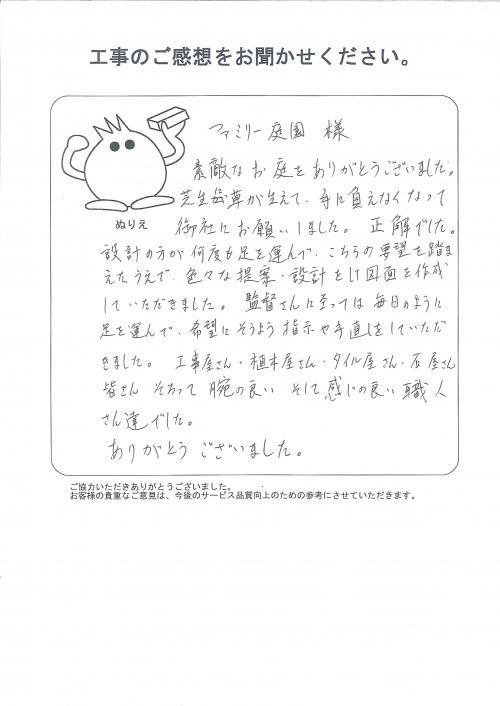 工事のご感想をお聞かせください。
ファミリー庭園 様
素敵なお庭をありがとうございました。
芝生や草が生えて、手に負えなくなって
御社にお願いしました。 正解でした。
ぬりえ
設計の方が何度も足を運んで、こちらの要望を踏ま
えたうえで、色々な提案・設計をし図面を作成
していただきました。 監督さんに至っては毎日のように
足を運んで、希望にそうよう指示や手直しをしていただ
きました。 工事屋さん・植木屋さん・タイル屋さん・石屋さん
皆さん そろって 腕の良い そして感じの良い職人
さん達でした。
ありがとう ございました。
ご協力いただきありがとうございました。
お客様の貴重なご意見は、今後のサービス品質向上のための参考にさせていただきます。